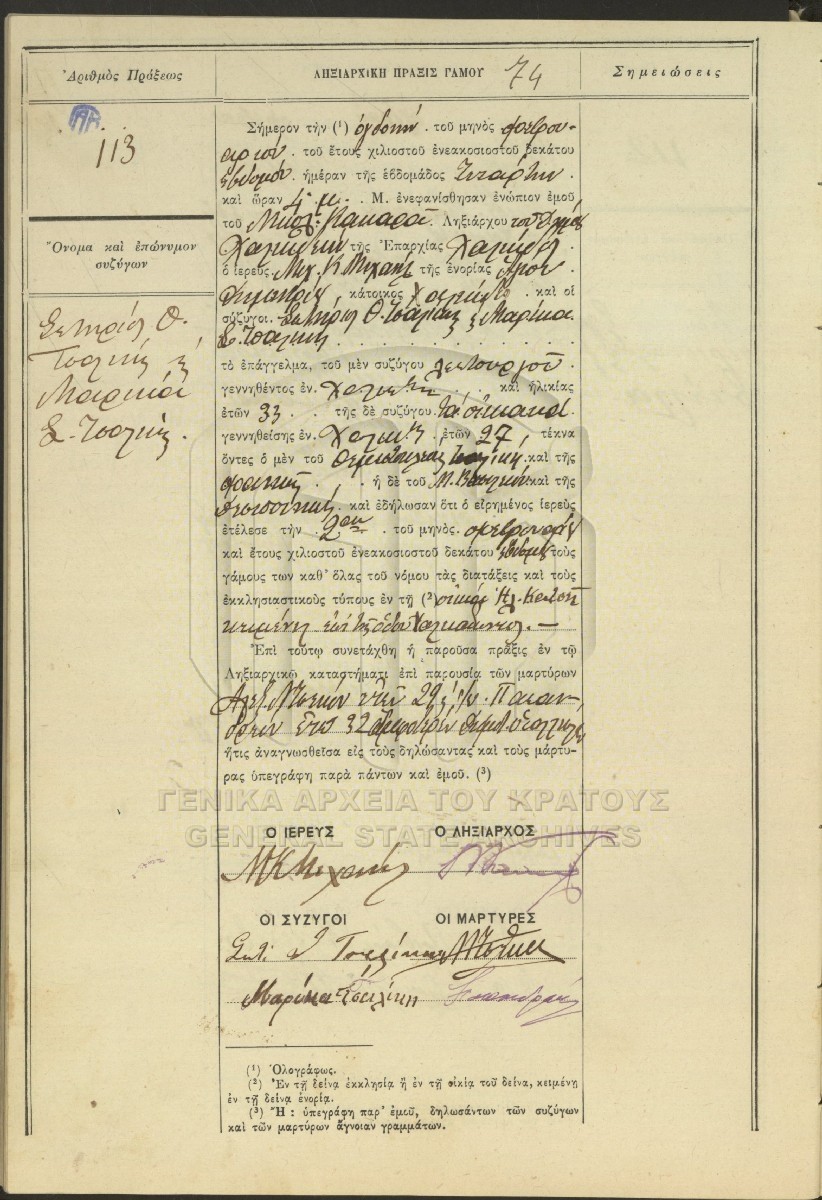 Ἀριθμὸς Πράξεως
ΛΗΞΙΑΡΧΙΚΗ ΠΡΑΞΙΣ ΓΑΜΟΥ 74
Σημειώσεις
113
Ὄνομα καὶ ἐπώνυμον
συζύγων
Σωτηρίου Θ.
Τσαλίκη
Μαρίκα
Σ. Τσαλίκη.
Σήμερον τὴν (¹) ὀγδόην τοῦ μηνὸς Φεβρου-
αρίου τοῦ ἔτους χιλιοστοῦ ἐνεακοσιοστοῦ δεκάτου
ἑβδόμου ἡμέραν τῆς ἑβδομάδος Τετάρτην
καὶ ὥραν 4 μ. Μ. ἐνεφανίσθησαν ἐνώπιον ἐμοῦ
τοῦ Ληξιάρχου τοῦ Δήμου
Χαλκιδέων τῆς Ἐπαρχίας Χαλκίδος
ὁ ἱερεὺς Μιχ. Κ Μιχαὴλ τῆς ἐνορίας Ἁγίου
Δημητρίου κάτοικος καὶ οἱ
σύζυγοι Σωτήριος Θ. Τσαλίκης Μαρίκα
Σ. Τσαλίκη
τὸ ἐπάγγελμα, τοῦ μὲν συζύγου
γεννηθέντος ἐν Χαλκίδι καὶ ἡλικίας
ἐτῶν 33 τῆς δὲ συζύγου τὰ οἰκιακὰ
γεννηθείσης ἐν Χαλκίδι ἐτῶν 27, τέκνα
ὄντες ὁ μὲν τοῦ Θεμιστοκλέους Τσαλίκη καὶ τῆς
ἡ δὲ τοῦ Μ. καὶ τῆς
καὶ ἐδήλωσαν ὅτι ὁ εἰρημένος ἱερεὺς
ἐτέλεσε τὴν 2αν τοῦ μηνὸς Φεβρουαρίου
καὶ ἔτους χιλιοστοῦ ἐνεακοσιοστοῦ δεκάτου ἑβδόμου τοὺς
γάμους των καθ' ὅλας τοῦ νόμου τὰς διατάξεις καὶ τοὺς
ἐκκλησιαστικοὺς τύπους ἐν τῇ (²) οἰκίᾳ
κειμένῃ ἐπὶ τῆς ὁδοῦ
Ἐπὶ τούτῳ συνετάχθη ἡ παροῦσα πρᾶξις ἐν τῷ
Ληξιαρχικῷ καταστήματι ἐπὶ παρουσίᾳ τῶν μαρτύρων
ἐτῶν 29
ἐτῶν 32
ἥτις ἀναγνωσθεῖσα εἰς τοὺς δηλώσαντας καὶ τοὺς μάρτυ-
ρας ὑπεγράφη παρὰ πάντων καὶ ἐμοῦ. (³)
ΓΕΝΙΚΑ ΑΡΧΕΙΑ ΤΟΥ ΚΡΑΤΟΥΣ
GENERAL STATE ARCHIVES
Ο ΙΕΡΕΥΣ Ο ΛΗΞΙΑΡΧΟΣ
Μ Κ Μιχαήλ
ΟΙ ΣΥΖΥΓΟΙ ΟΙ ΜΑΡΤΥΡΕΣ
Σωτ. Θ Τσαλίκης
Μαρίκα Τσαλίκη
(¹) Ὁλογράφως.
(²) Ἐν τῇ δεῖνα ἐκκλησίᾳ ἢ ἐν τῇ οἰκίᾳ τοῦ δεῖνα, κειμένῃ
ἐν τῇ δεῖνα ἐνορίᾳ.
(³) Ἤ : ὑπεγράφη παρ' ἐμοῦ, δηλωσάντων τῶν συζύγων
καὶ τῶν μαρτύρων ἄγνοιαν γραμμάτων.